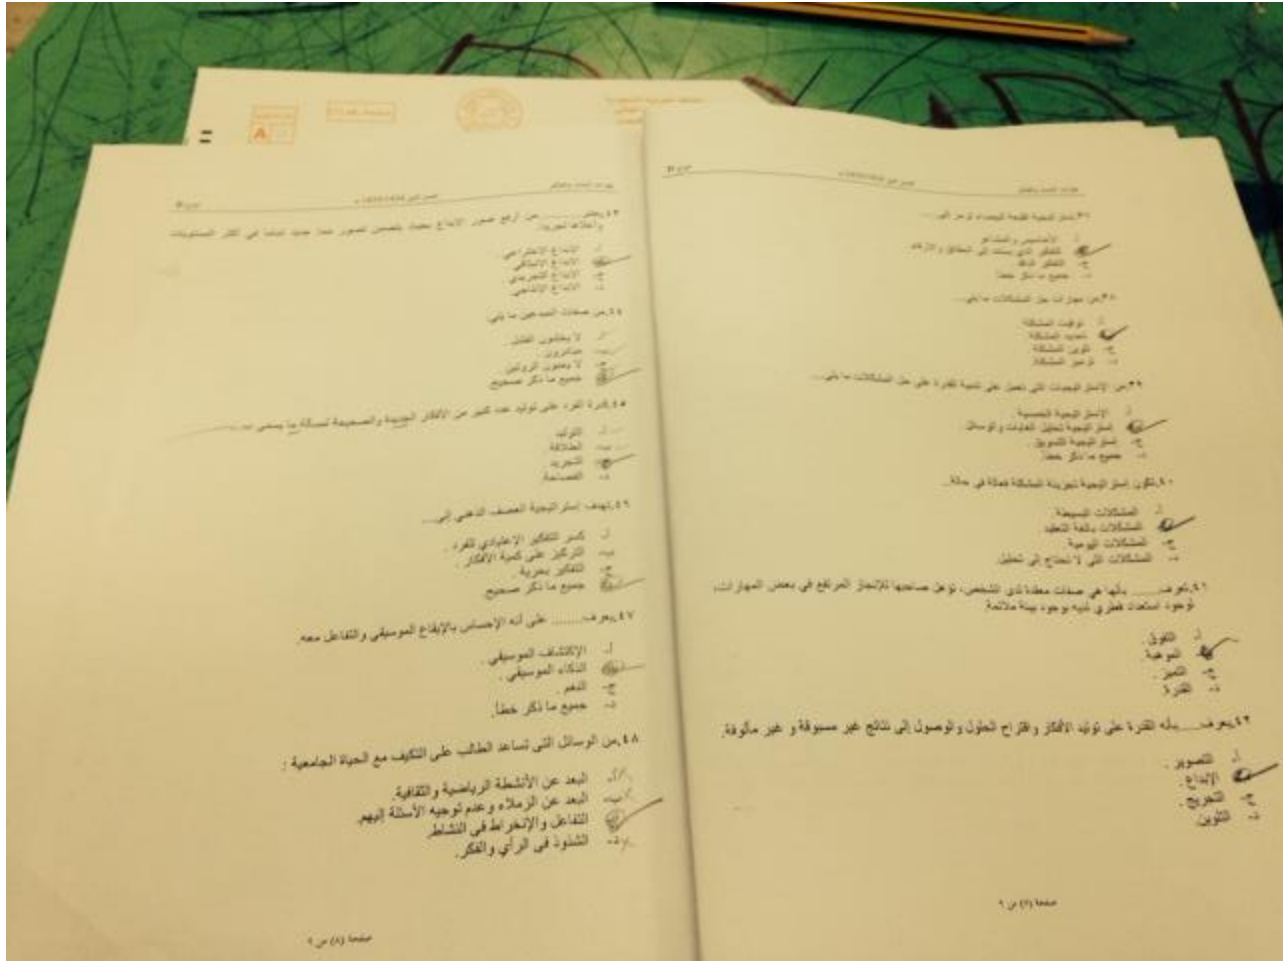 مهارات التعلم والتفكير
٣٧.إستراتيجية القبعة البيضاء ترمز إلى....
أ. الأحاسيس والمشاعر
ب. التفكير الذي يستند إلى الحقائق والأرقام.
ج. التفكير الناقد
د. جميع ما ذكر خطأ.
٣٨.من مهارات حل المشكلات ما يلي....
تحديد المشكلة
ج. تلوين المشكلة
د. ترميز المشكلة.
٣٩.من الإستراتيجيات التي تعمل على تنمية القدرة على حل المشكلات ما يلي....
أ. الإستراتيجية الخمسية.
إستراتيجية تحليل الغايات والوسائل.
ج. إستراتيجية التسويق.
د. جميع ما ذكر خطأ.
٤٠.تكون إستراتيجية تجزيئة المشكلة فعالة في حالة...
أ. المشكلات البسيطة.
المشكلات بالغة التعقيد.
ج. المشكلات اليومية.
د. المشكلات التي لا تحتاج إلى تحليل.
٤١.تعرف........ بأنها هي صفات معقدة لدى الشخص، تؤهل صاحبها للإنجاز المرتفع في بعض المهارات،
لوجود استعداد فطري لديه بوجود بيئة ملائمة.
أ. التفوق.
الموهبة.
ج. التميز.
د. القدرة.
٤٢.يعرف........بأنه القدرة على توليد الأفكار واقتراح الحلول والوصول إلى نتائج غير مسبوقة و غير مألوفة.
أ. التصوير.
الإبداع.
ج. التخريج.
د. التلوين.
صفحة (٧) من ٩
مهارات التعلم والتفكير
٤٣.يعتبر............من أرفع صور الإبداع بحيث يتضمن تصور مبدأ جديد تماما في أكثر المستويات
وأعلاها تجريدا.
أ. الإبداع الاختراعي.
الإبداع الإنبثاقي.
ج. الإبداع التجريدي.
د. الإبداع الإنتاجي.
٤٤.من صفات المبدعين ما يلي:
أ. لا يخشون الفشل.
ب. مثابرون.
ج. لا يحبون الروتين.
جميع ما ذكر صحيح.
٤٥.قدرة الفرد على توليد عدد كبير من الأفكار الجديدة والصحيحة لمسألة ما يسمى بـ............
أ. التوليد
ب. الطلاقة
ج. التجريد
د. الفصاحة.
٤٦.تهدف إستراتيجية العصف الذهني إلى....
أ. كسر التفكير الإعتيادي للفرد.
ب. التركيز على كمية الأفكار.
ج. التفكير بحرية.
جميع ما ذكر صحيح.
٤٧.يعرف........ على أنه الإحساس بالإيقاع الموسيقي والتفاعل معه.
أ. الإكتشاف الموسيقي.
الذكاء الموسيقي.
ج. النغم.
د. جميع ما ذكر خطأ.
٤٨.من الوسائل التي تساعد الطالب على التكيف مع الحياة الجامعية :
أ. البعد عن الأنشطة الرياضية والثقافية.
ب. البعد عن الزملاء وعدم توجيه الأسئلة إليهم.
التفاعل والإنخراط في النشاط.
د. الشذوذ في الرأي والفكر.
صفحة (٨) من ٩
A